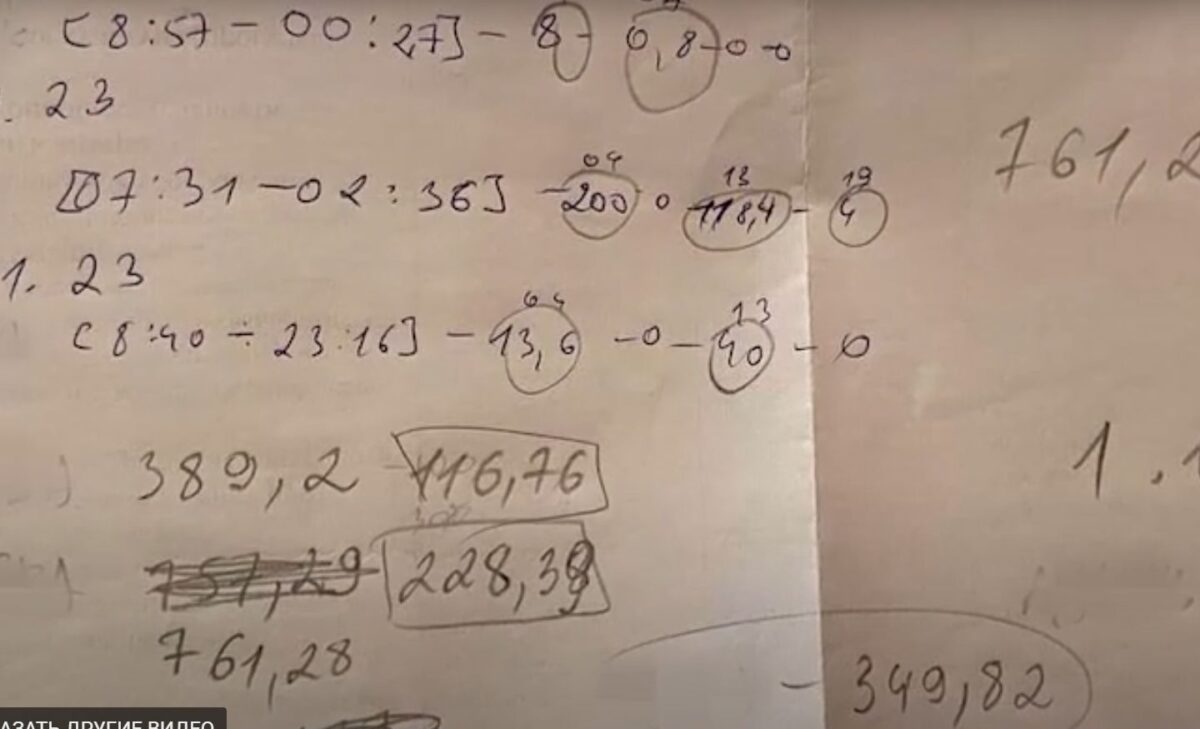 [8:57 - 00:27] - 8 - 0,8 - 0 - 0
. 23
[07:31 - 02:36] - 200 0 118,4 - 4
04 13 19
1. 23
[8:40 ÷ 23:16] - 13,6 - 0 - 40 - 0
04 13
389,2 116,76
228,39
761,28
761,2
1.
- 349,82
ЗАТЬ ДРУГИЕ ВИДЕО